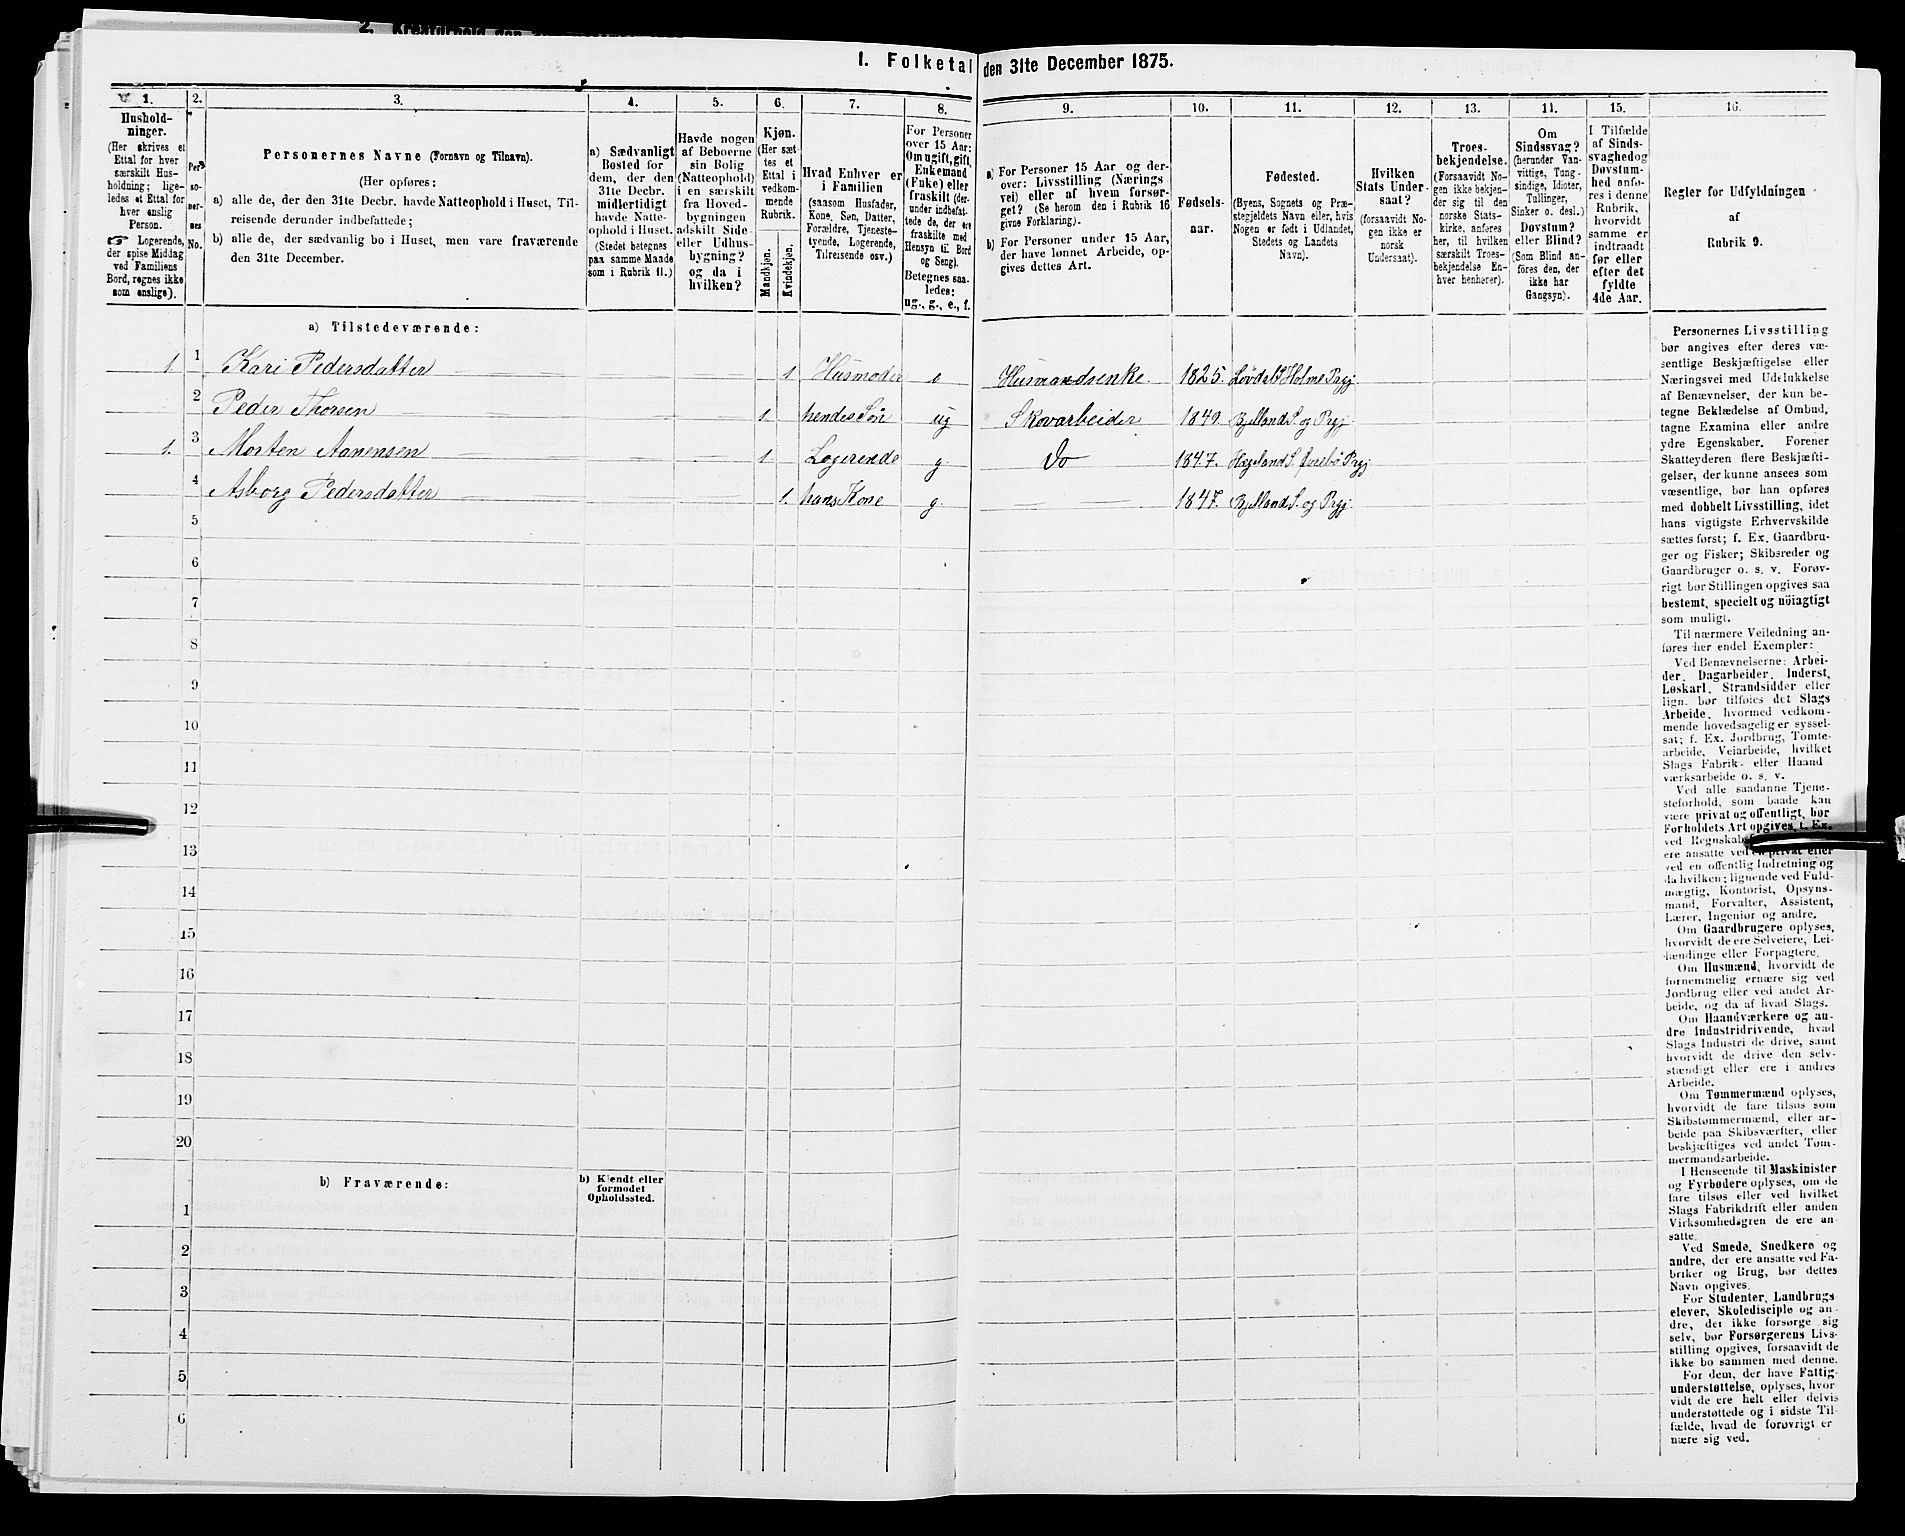 I. Folketal den 31te December 1875.
1.
Hushold-
ninger.
(Her skrives et
Ettal for hver
særskilt Hus-
holdning; lige-
ledes et Ettal for
hver enslig
Person.
☞ Logerende,
der spise Middag
ved Familiens
Bord, regnes ikke
som enslige).
2.
Per-
so-
ner-
nes
No.
3.
Personernes Navne (Fornavn og Tilnavn).
(Her opføres:
a) alle de, der den 31te Decbr. havde Natteophold i Huset, Til-
reisende derunder indbefattede;
b) alle de, der sædvanlig bo i Huset, men vare fraværende
den 31te December.
4.
a) Sædvanligt
Bosted for
dem, der den
31te Decbr.
midlertidigt
havde Natte-
ophold i Huset.
(Stedet betegnes
paa samme Maade
som i Rubrik 11.)
5.
Havde nogen
af Beboerne
sin Bolig
(Natteophold)
i en særskilt
fra Hoved-
bygningen
adskilt Side-
eller Udhus-
bygning?
og da i
hvilken?
6.
Kjøn.
(Her sæt-
tes et
Ettal i
vedkom-
mende
Rubrik.
Mandkjøn.
Kvindekjøn.
7.
Hvad Enhver er
i Familien
(saasom Husfader,
Kone, Søn, Datter,
Forældre, Tjeneste-
tyende, Logerende,
Tilreisende osv.)
8.
For Personer
over 15 Aar:
Om ugift, gift,
Enkemand
(Enke) eller
fraskilt (der-
under indbefat-
tede de, der ere
fraskilte med
Hensyn til Bord
og Seng).
Betegnes saa-
ledes:
ug., g., e., f.
9.
a) For Personer 15 Aar og der-
over: Livsstilling (Nærings
vei) eller af hvem forsør-
get? (Se herom den i Rubrik 16
givne Forklaring).
b) For Personer under 15 Aar,
der have lønnet Arbeide, op-
gives dettes Art.
10.
Fødsels-
aar.
11.
Fødested.
(Byens, Sognets og Præ-
stegjeldets Navn eller, hvis
Nogen er født i Udlandet,
Stedets og Landets
Navn).
12.
Hvilken
Stats Under-
saat?
(forsaavidt No-
gen ikke er
norsk
Undersaat).
13.
Troes-
bekjendelse.
(Forsaavidt No-
gen ikke bekjen-
der sig til den
norske Stats-
kirke, anføres
her, til hvilken
særskilt Troes-
bekjendelse En-
hver henhører).
14.
Om
Sindssvag?
(herunder Van-
vittige, Tung-
sindige, Idioter,
Tullinger,
Sinker o. desl.)
Døvstum?
eller Blind?
(Som Blind an-
føres den, der
ikke har
Gangsyn).
15.
I Tilfælde
af Sinds-
svaghed og
Døvstum-
hed anfø-
res i denne
Rubrik,
hvorvidt
samme er
indtraadt
før eller
efter det
fyldte
4de Aar.
16.
Regler for Udfyldningen
af
Rubrik 9.
a) Tilstedeværende:
1. 1 Kari Pedersdatter 1 Husmoder e Husmandsenke. 1825. Løvdal S Holme Prgj.
2 Peder Thorsen 1. hendes Søn ug Skovarbeider 1849. Bjelland S. og Prgj.
1. 3 Morten Aanensen 1. Logerende g Do 1847. Hægeland S. Øvrebø Prgj
4 Asborg Pedersdatter 1. hans Kone g. 1847. Bjelland S. og Prgj.
5
6
7
8
9
10
11
12
13
14
15
16
17
18
19
20
b) Fraværende:
b) Kjendt eller
formodet
Opholdssted.
1
2
3
4
5
6
Personernes Livsstilling
bør angives efter deres væ-
sentlige Beskjæftigelse eller
Næringsvei med Udelukkelse
af Benævnelser, der kun be-
tegne Beklædelse af Ombud,
tagne Examina eller andre
ydre Egenskaber. Forener
Skatteyderen flere Beskjæfti-
gelser, der kunne ansees som
væsentlige, bør han opføres
med dobbelt Livsstilling, idet
hans vigtigste Erhvervskilde
sættes først; f. Ex. Gaardbru-
ger og Fisker; Skibsreder og
Gaardbruger o. s. v. Forøv-
rigt bør Stillingen opgives saa
bestemt, specielt og nöiagtigt
som muligt.
Til nærmere Veiledning an-
føres her endel Exempler:
Ved Benævnelserne: Arbei-
der, Dagarbeider, Inderst,
Løskarl, Strandsidder eller
lign. bør tilføies det Slags
Arbeide, hvormed vedkom-
mende hovedsagelig er syssel-
sat; f. Ex. Jordbrug, Tomte-
arbeide, Veiarbeide, hvilket
Slags Fabrik- eller Haand
værksarbeide o. s. v.
Ved alle saadanne Tjene-
steforhold, som baade kan
være privat og offentligt, bør
Forholdets Art opgives, f. Ex.
ved
ere ansatte ved en privat eller
ved en offentlig Indretning og
da hvilken; lignende ved Fuld-
mægtig, Kontorist, Opsyns-
mand, Forvalter, Assistent,
Lærer, Ingeniør og andre.
Om Gaardbrugere oplyses,
hvorvidt de ere Selveiere, Lei-
lændinge eller Forpagtere.
Om Husmænd, hvorvidt de
fornemmelig ernære sig ved
Jordbrug eller ved andet Ar-
beide, og da af hvad Slags.
Om Haandværkere og an-
dre Industridrivende, hvad
Slags Industri de drive, samt
hvorvidt de drive den selv-
stændigt eller ere i andres
Arbeide.
Om Tømmermænd oplyses,
hvorvidt de fare tilsøs som
Skibstømmermænd, eller ar-
beide paa Skibsværfter, eller
beskjæftiges ved andet Tøm-
mermandsarbeide.
I Henseende til Maskinister
og Fyrbødere oplyses, om de
fare tilsøs eller ved hvilket
Slags Fabrikdrift eller anden
Virksomhedsgren de ere an-
satte.
Ved Smede, Snedkere og
andre, der ere ansatte ved Fa-
briker og Brug, bør dettes
Navn opgives.
For Studenter, Landbrugs
elever, Skoledisciple og an-
dre, der ikke forsørge sig
selv, bør Forsørgerens Livs-
stilling opgives, forsaavidt de
ikke bo sammen med denne.
For dem, der have Fattig-
understøttelse, oplyses, hvor-
vidt de ere helt eller delvis
understøttede og i sidste Til-
fælde, hvad de forøvrigt er
nære sig ved.